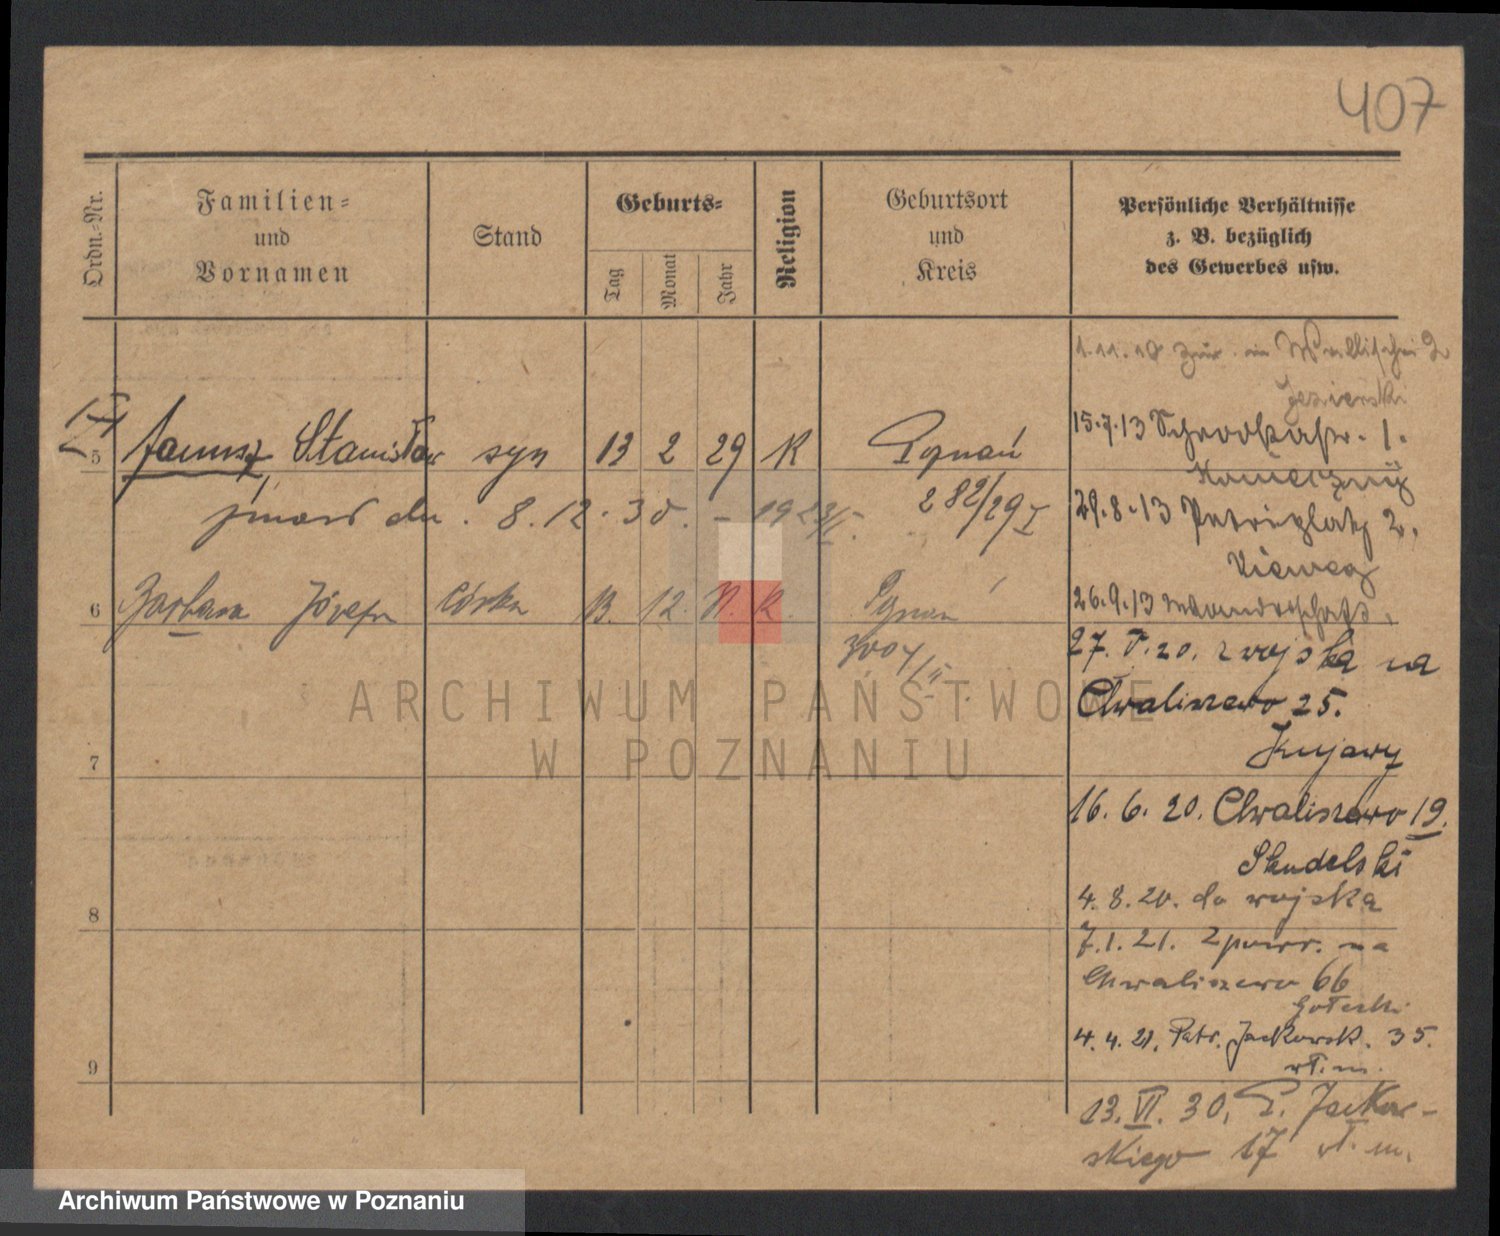 407
Ordn.-Nr.
Familien-
und
Vornamen
Stand
Geburts-
Tag
Monat
Jahr
Religion
Geburtsort
und
Kreis
Persönliche Verhältnisse
z. B. bezüglich
des Gewerbes usw.
1.11.10 zur. in Wallischei 2
Jezierski
5 Janusz, Stanisław syn 13 2 29 K Poznań
15.7.13 1.
8.12.30. 282/29 I
29.8.13 Petriplatz 2.
Vieweg
6 Barbara Józefa córka 13. 12. K. Poznań
26.9.13 Wanderschaft.
27. V. 20. z wojska na
Chwaliszewo 25.
Kujawy
7
16. 6. 20. Chwaliszewo 19.
Skudelski
8
4. 8. 20. do wojska
7.1.21. z powr. na
Chwaliszewo 66
4. 4. 21. Patr. Jackowsk. 35.
wł. m.
9
13. VI. 30. P. Jackow-
skiego 17 wł. m.
ARCHIWUM PAŃSTWOWE
W POZNANIU
Archiwum Państwowe w Poznaniu